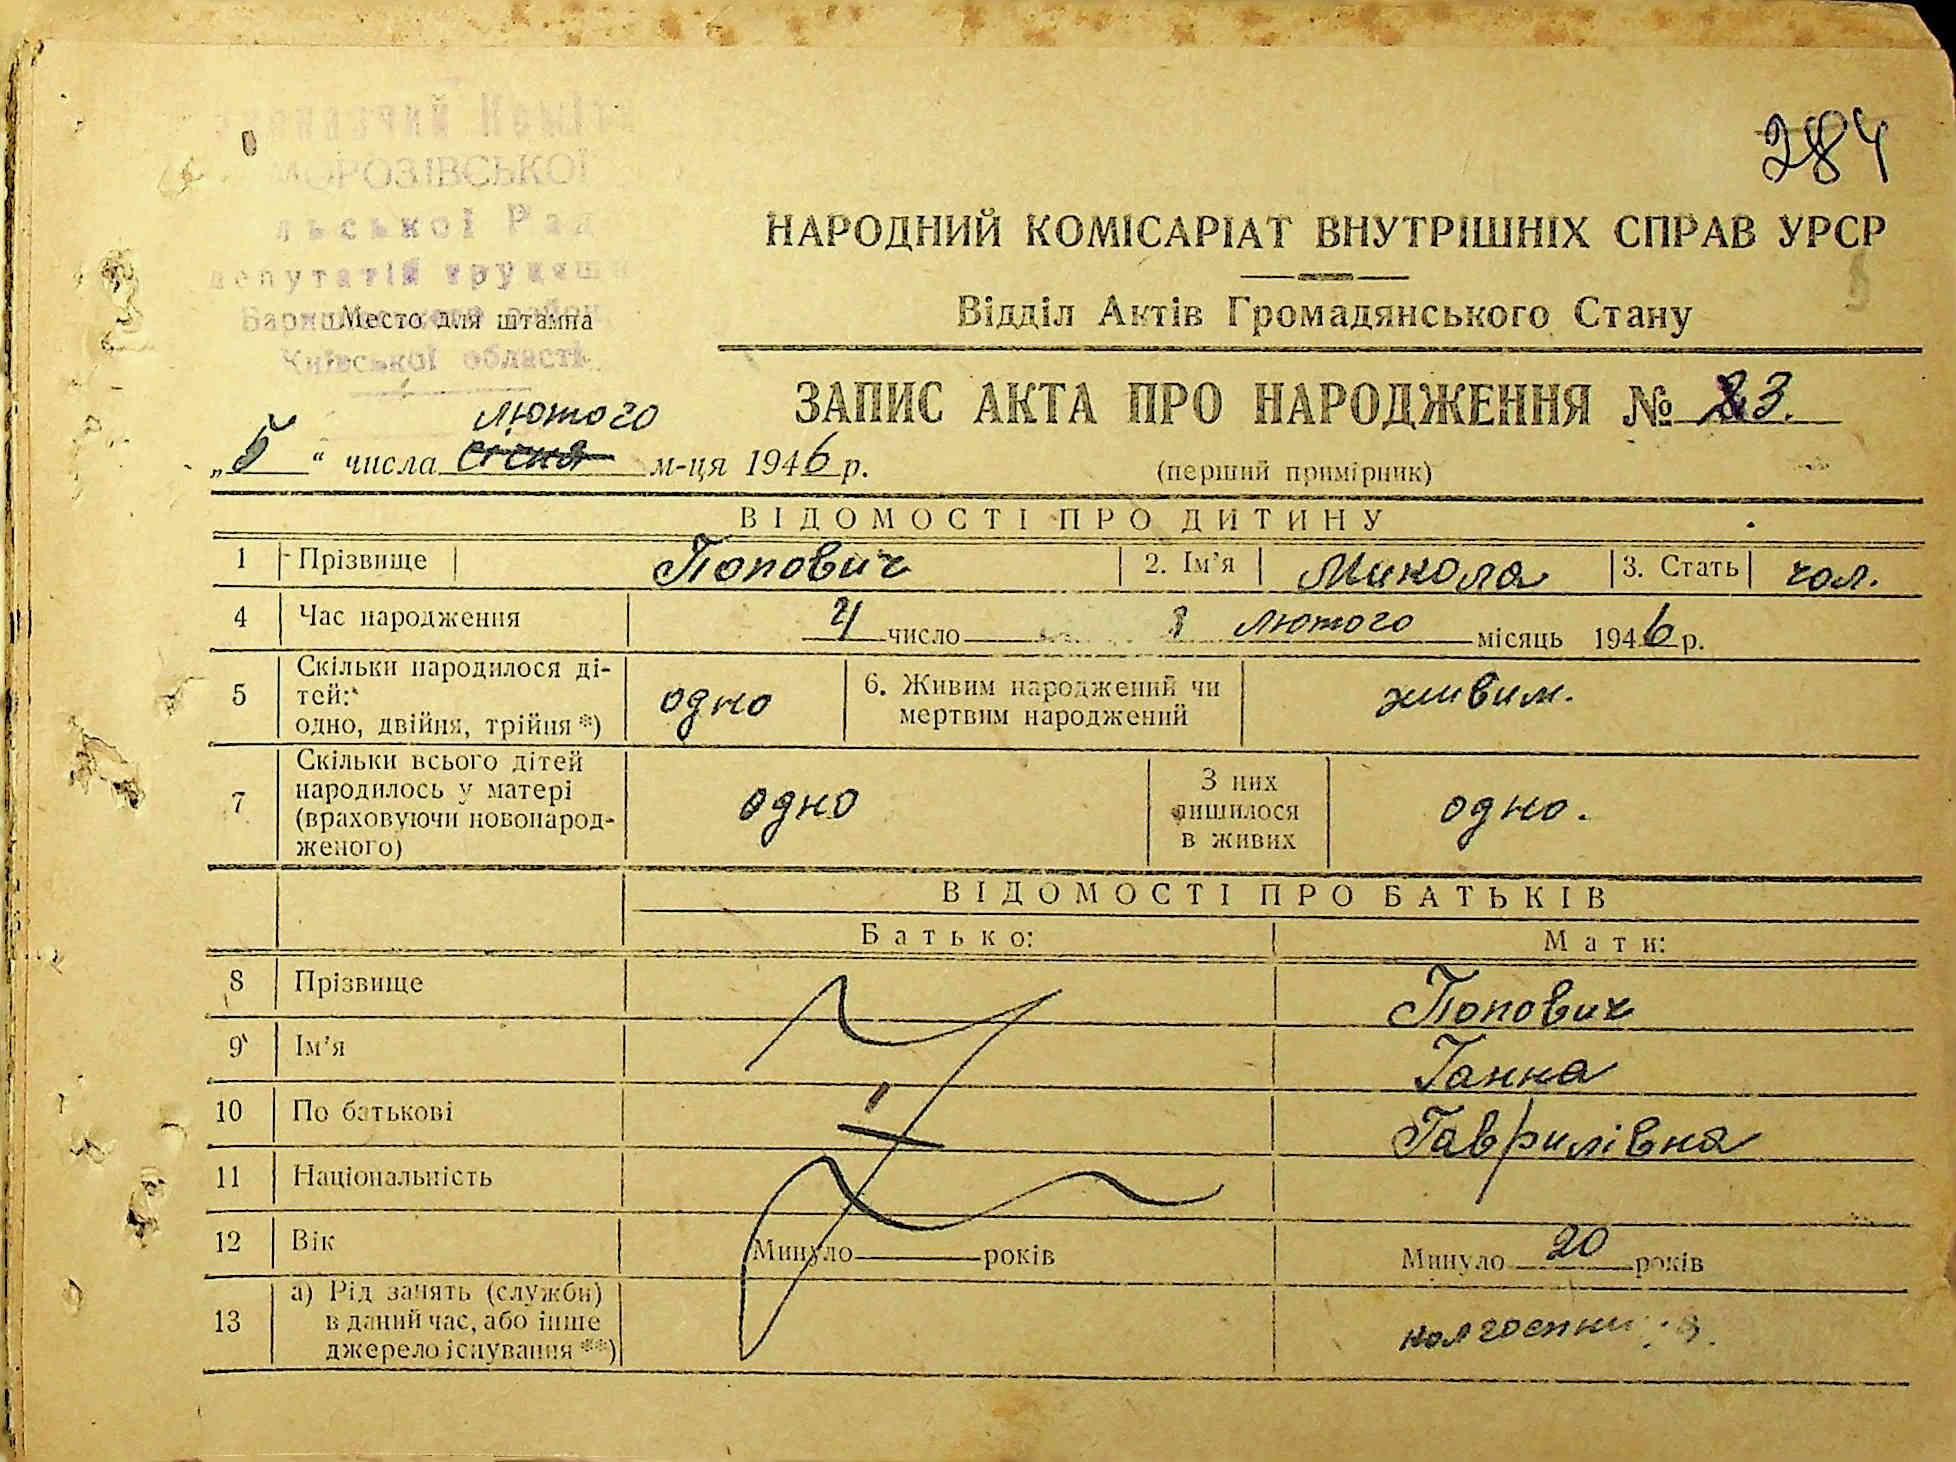 284
МОРОЗІВСЬКОЇ
Київської області
Место для штампа
НАРОДНИЙ КОМІСАРІАТ ВНУТРІШНІХ СПРАВ УРСР
Відділ Актів Громадянського Стану
ЗАПИС АКТА ПРО НАРОДЖЕННЯ № 23.
(перший примірник)
лютого
„5“ числа січня м-ця 1946 р.
ВІДОМОСТІ ПРО ДИТИНУ
1 Прізвище Попович 2. Ім'я Микола 3. Стать чол.
4 Час народження 4 число лютого місяць 1946 р.
5 Скільки народилося ді-
тей:
одно, двійня, трійня *) одно 6. Живим народжений чи
мертвим народжений живим.
7 Скільки всього дітей
народилось у матері
(враховуючи новонарод-
женого) одно З них
лишилося
в живих одно.
ВІДОМОСТІ ПРО БАТЬКІВ
Батько: Мати:
8 Прізвище Попович
9 Ім'я Ганна
10 По батькові Гаврилівна
11 Національність
12 Вік Минуло років Минуло 20 років
13 а) Рід занять (служби)
в даний час, або інше
джерело існування **)